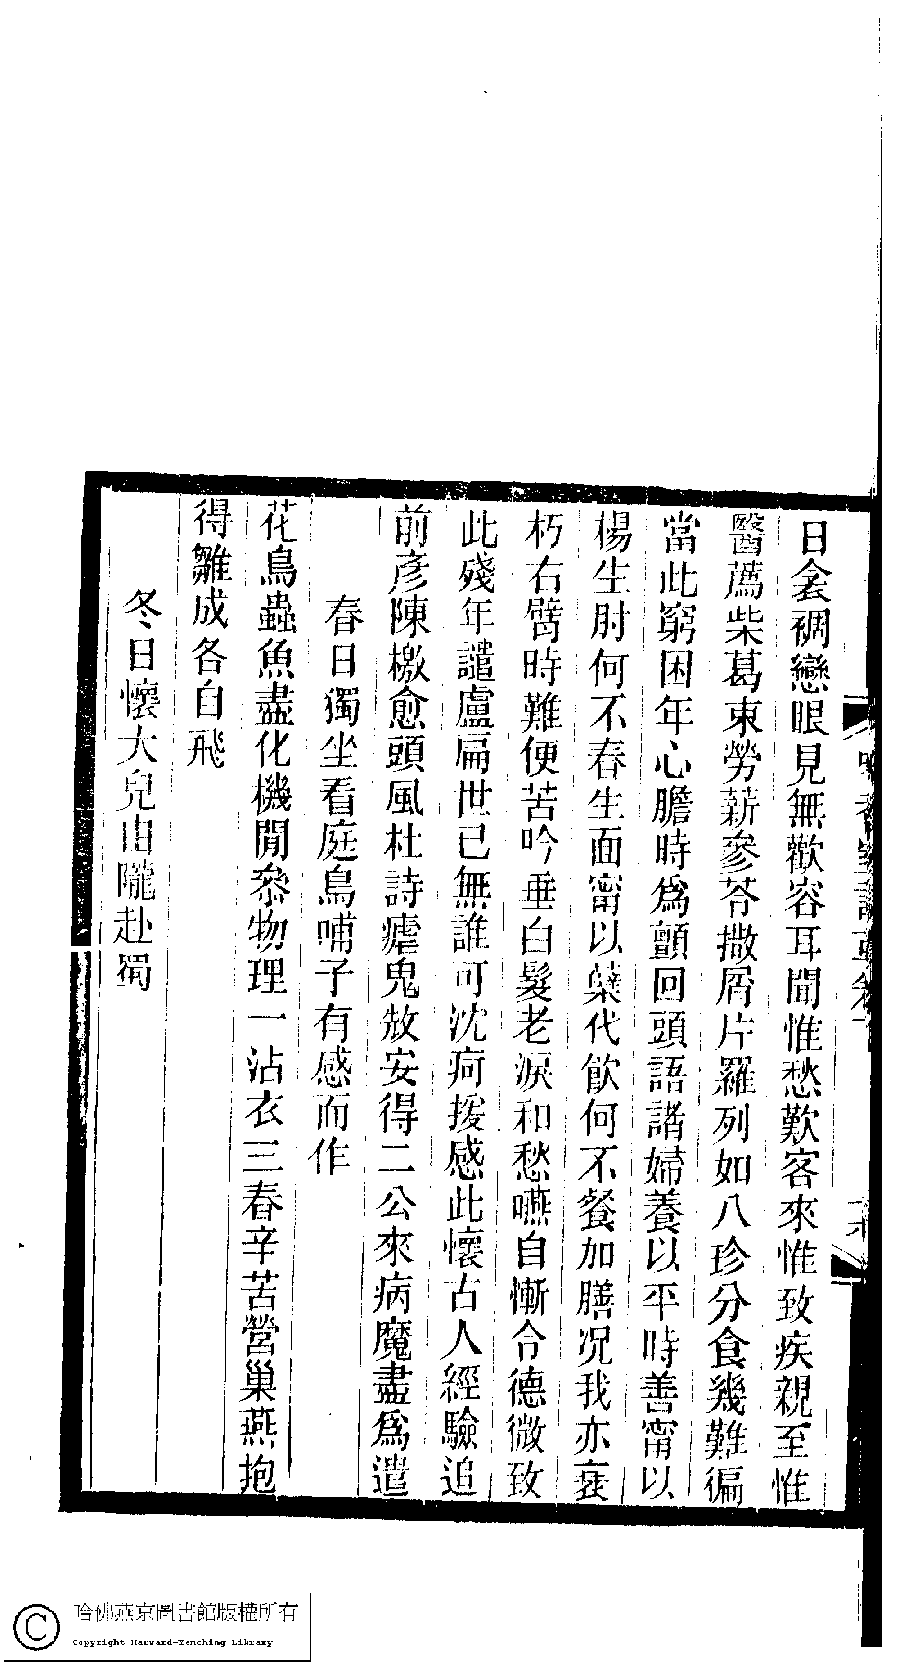 日衾裯戀眼見無歡容耳聞惟愁歎客來惟致疾親至惟
醫薦柴葛東勞薪參苓撒屑片羅列如八珍分食幾難徧
當此窮困年心膽時爲顫回頭語諸婦養以平時善甯以
楊生肘何不春生面甯以蘗代飲何不餐加膳况我亦衰
朽右臂時難便苦吟垂白髮老淚和愁嚥自慚令德微致
此殘年譴盧扁世已無誰可沈疴援感此懷古人經驗追
前彥陳檄愈頭風杜詩瘧鬼赦安得二公來病魔盡爲遣
春日獨坐看庭鳥哺子有感而作
花鳥蟲魚盡化機閒參物理一沾衣三春辛苦營巢燕抱
得雛成各自飛
冬日懷大兒由隴赴蜀
哈佛燕京圖書館版權所有
Copyright Harvard-Yenching Library